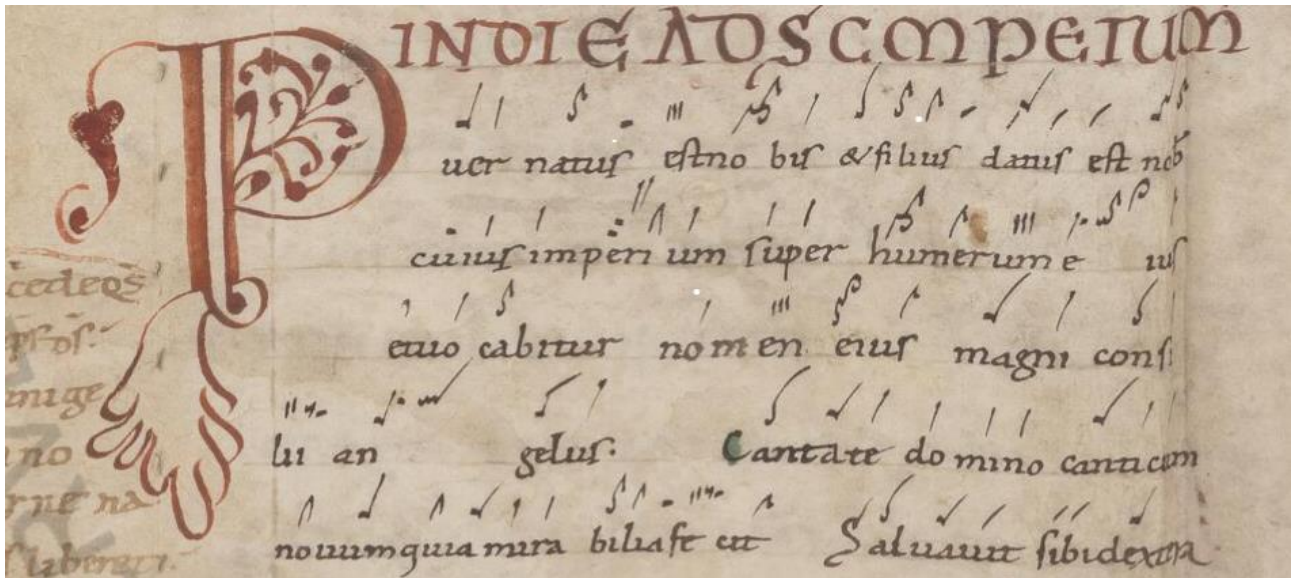 IN DIE AD S C M PETUM
Puer natus est no bis & filius datus est nob
cuius imperi um super humerum e ius
et uo cabitur nomen eius magni consi
lii an gelus. Cantate domino canticum
nouum quia mira bilia fe cit Saluauit sibi dextera